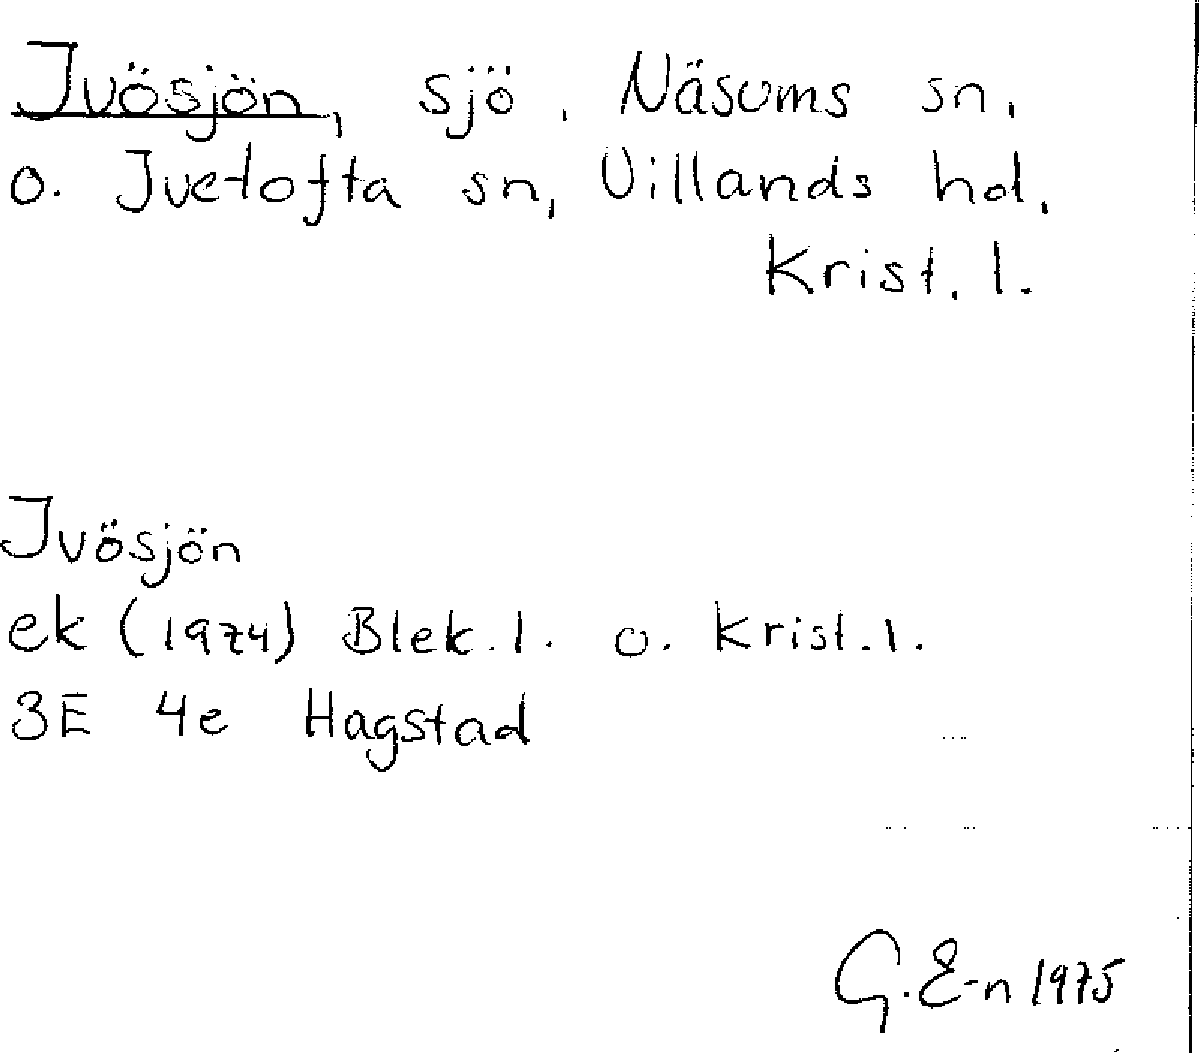 Ivösjön, sjö, Näsums sn,
o. Ivetofta sn, Villands hd.
Krist. l.
Ivösjön
ek (1974) Blek. l. o. Krist. l.
3E 4e Hagstad
G. E-n 1975